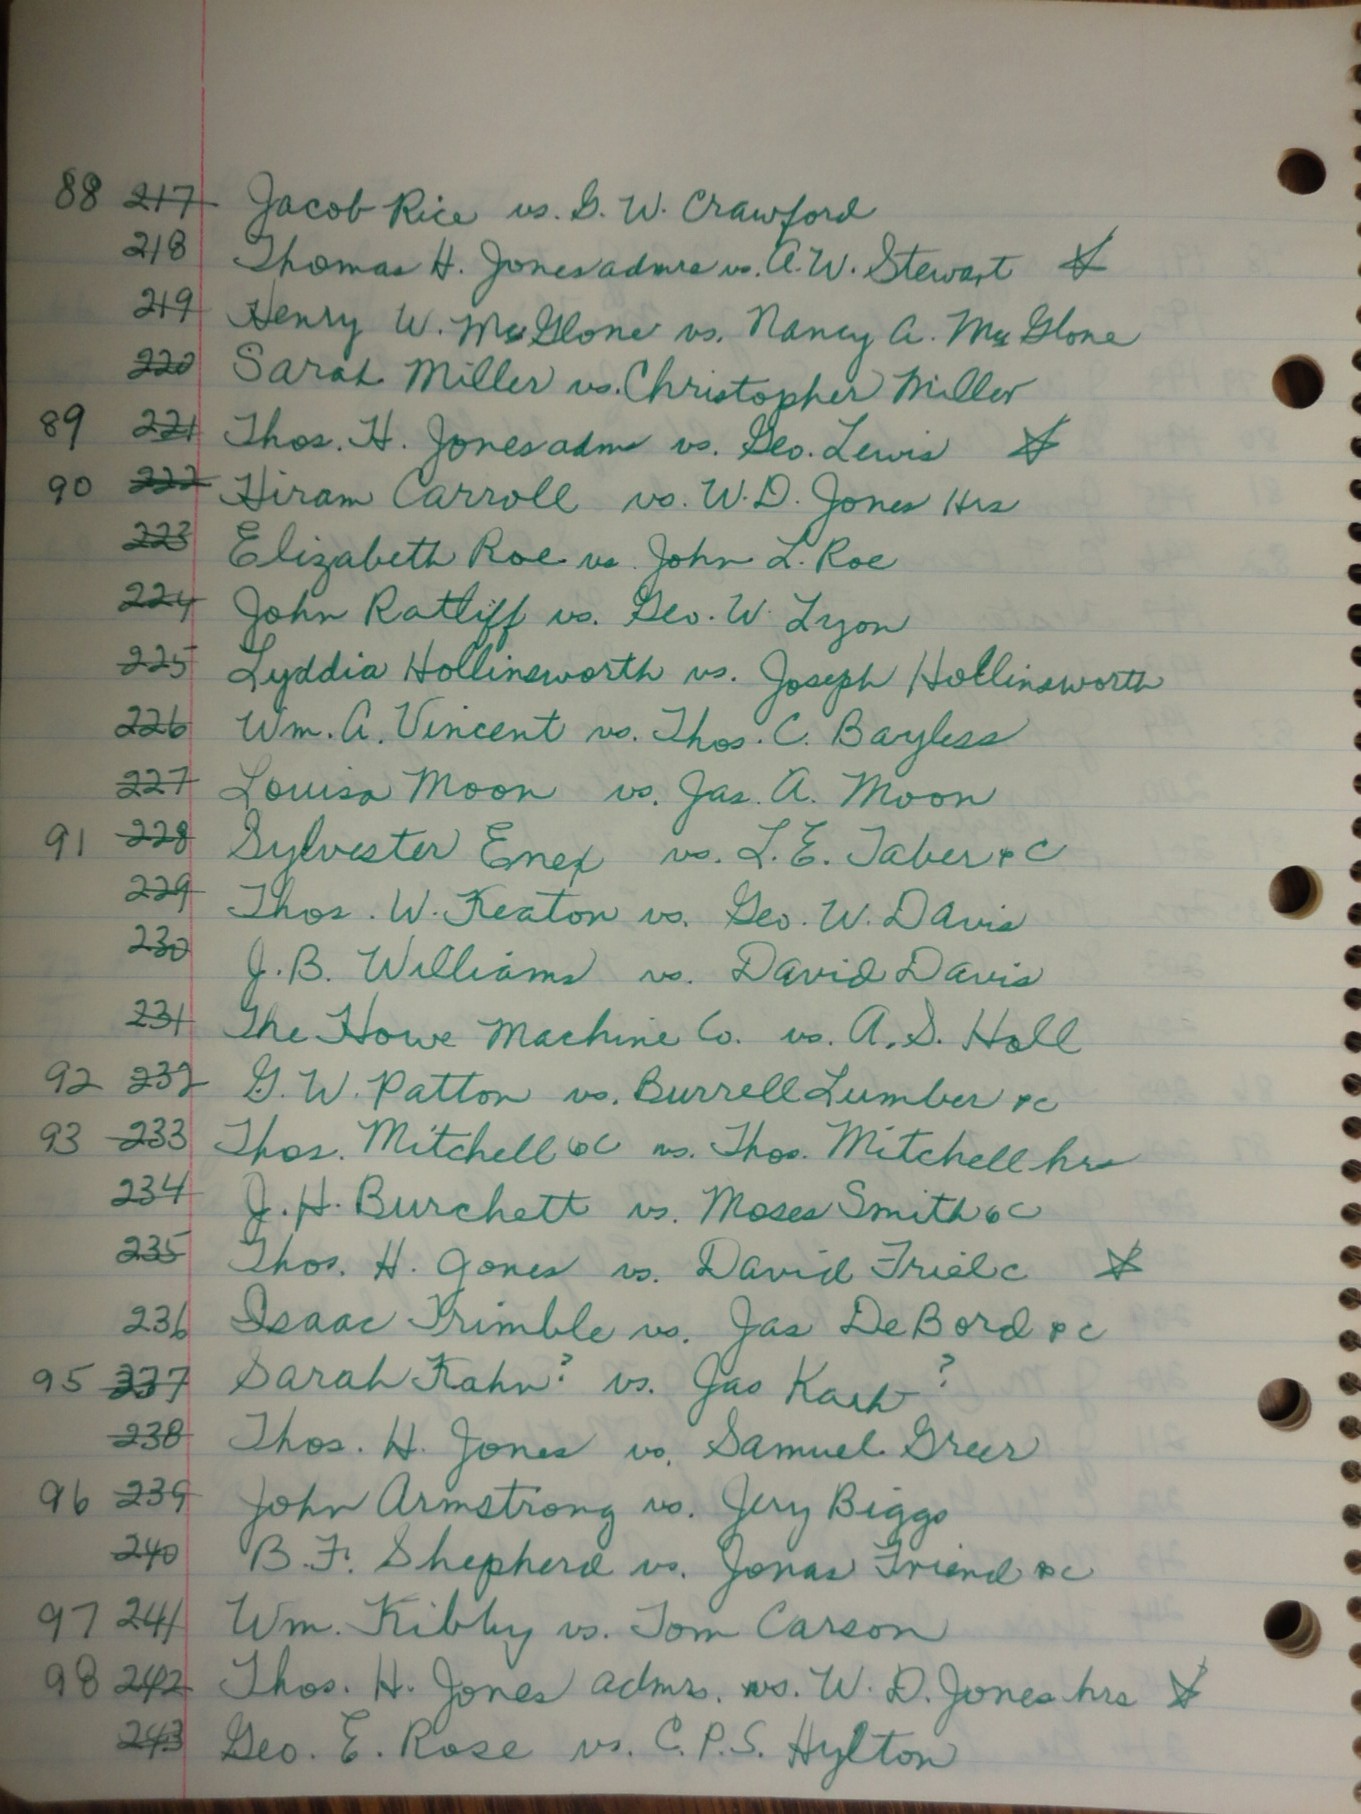 88 217 Jacob Rice vs. G. W. Crawford
218 Thomas H. Jones admrs vs. A. W. Stewart ☆
219 Henry W. McGlone vs. Nancy A. McGlone
220 Sarah Miller vs. Christopher Miller
89 221 Thos. H. Jones adm vs. Geo. Lewis ☆
90 222 Hiram Carroll vs. W. D. Jones Hrs
223 Elizabeth Roe vs John L. Roe
224 John Ratliff vs. Geo. W. Lyon
225 Lyddia Hollinsworth vs. Joseph Hollinsworth
226 Wm. A. Vincent vs. Thos. C. Bayless
227 Louisa Moon vs. Jas. A. Moon
91 228 Sylvester Enex vs. L. E. Taber &C
229 Thos. W. Keaton vs. Geo. W. Davis
230 J. B. Williams vs. David Davis
231 The Howe Machine Co. vs. A. S. Hall
92 232 G. W. Patton vs. Burrell Lumber &c
93 233 Thos. Mitchell &C vs. Thos. Mitchell hrs
234 J. H. Burchett vs. Moses Smith &C
235 Thos. H. Jones vs. David Friel c ☆
236 Isaac Trimble vs. Jas DeBord &c
95 237 Sarah Kahn? vs. Jas Kash?
238 Thos. H. Jones vs. Samuel Greer
96 239 John Armstrong vs. Jery Biggs
240 B. F. Shepherd vs. Jonas Friend &c
97 241 Wm. Kibby vs. Tom Carson
98 242 Thos. H. Jones admrs. vs. W. D. Jones hrs ☆
243 Geo. E. Rose vs. C. P. S. Hylton